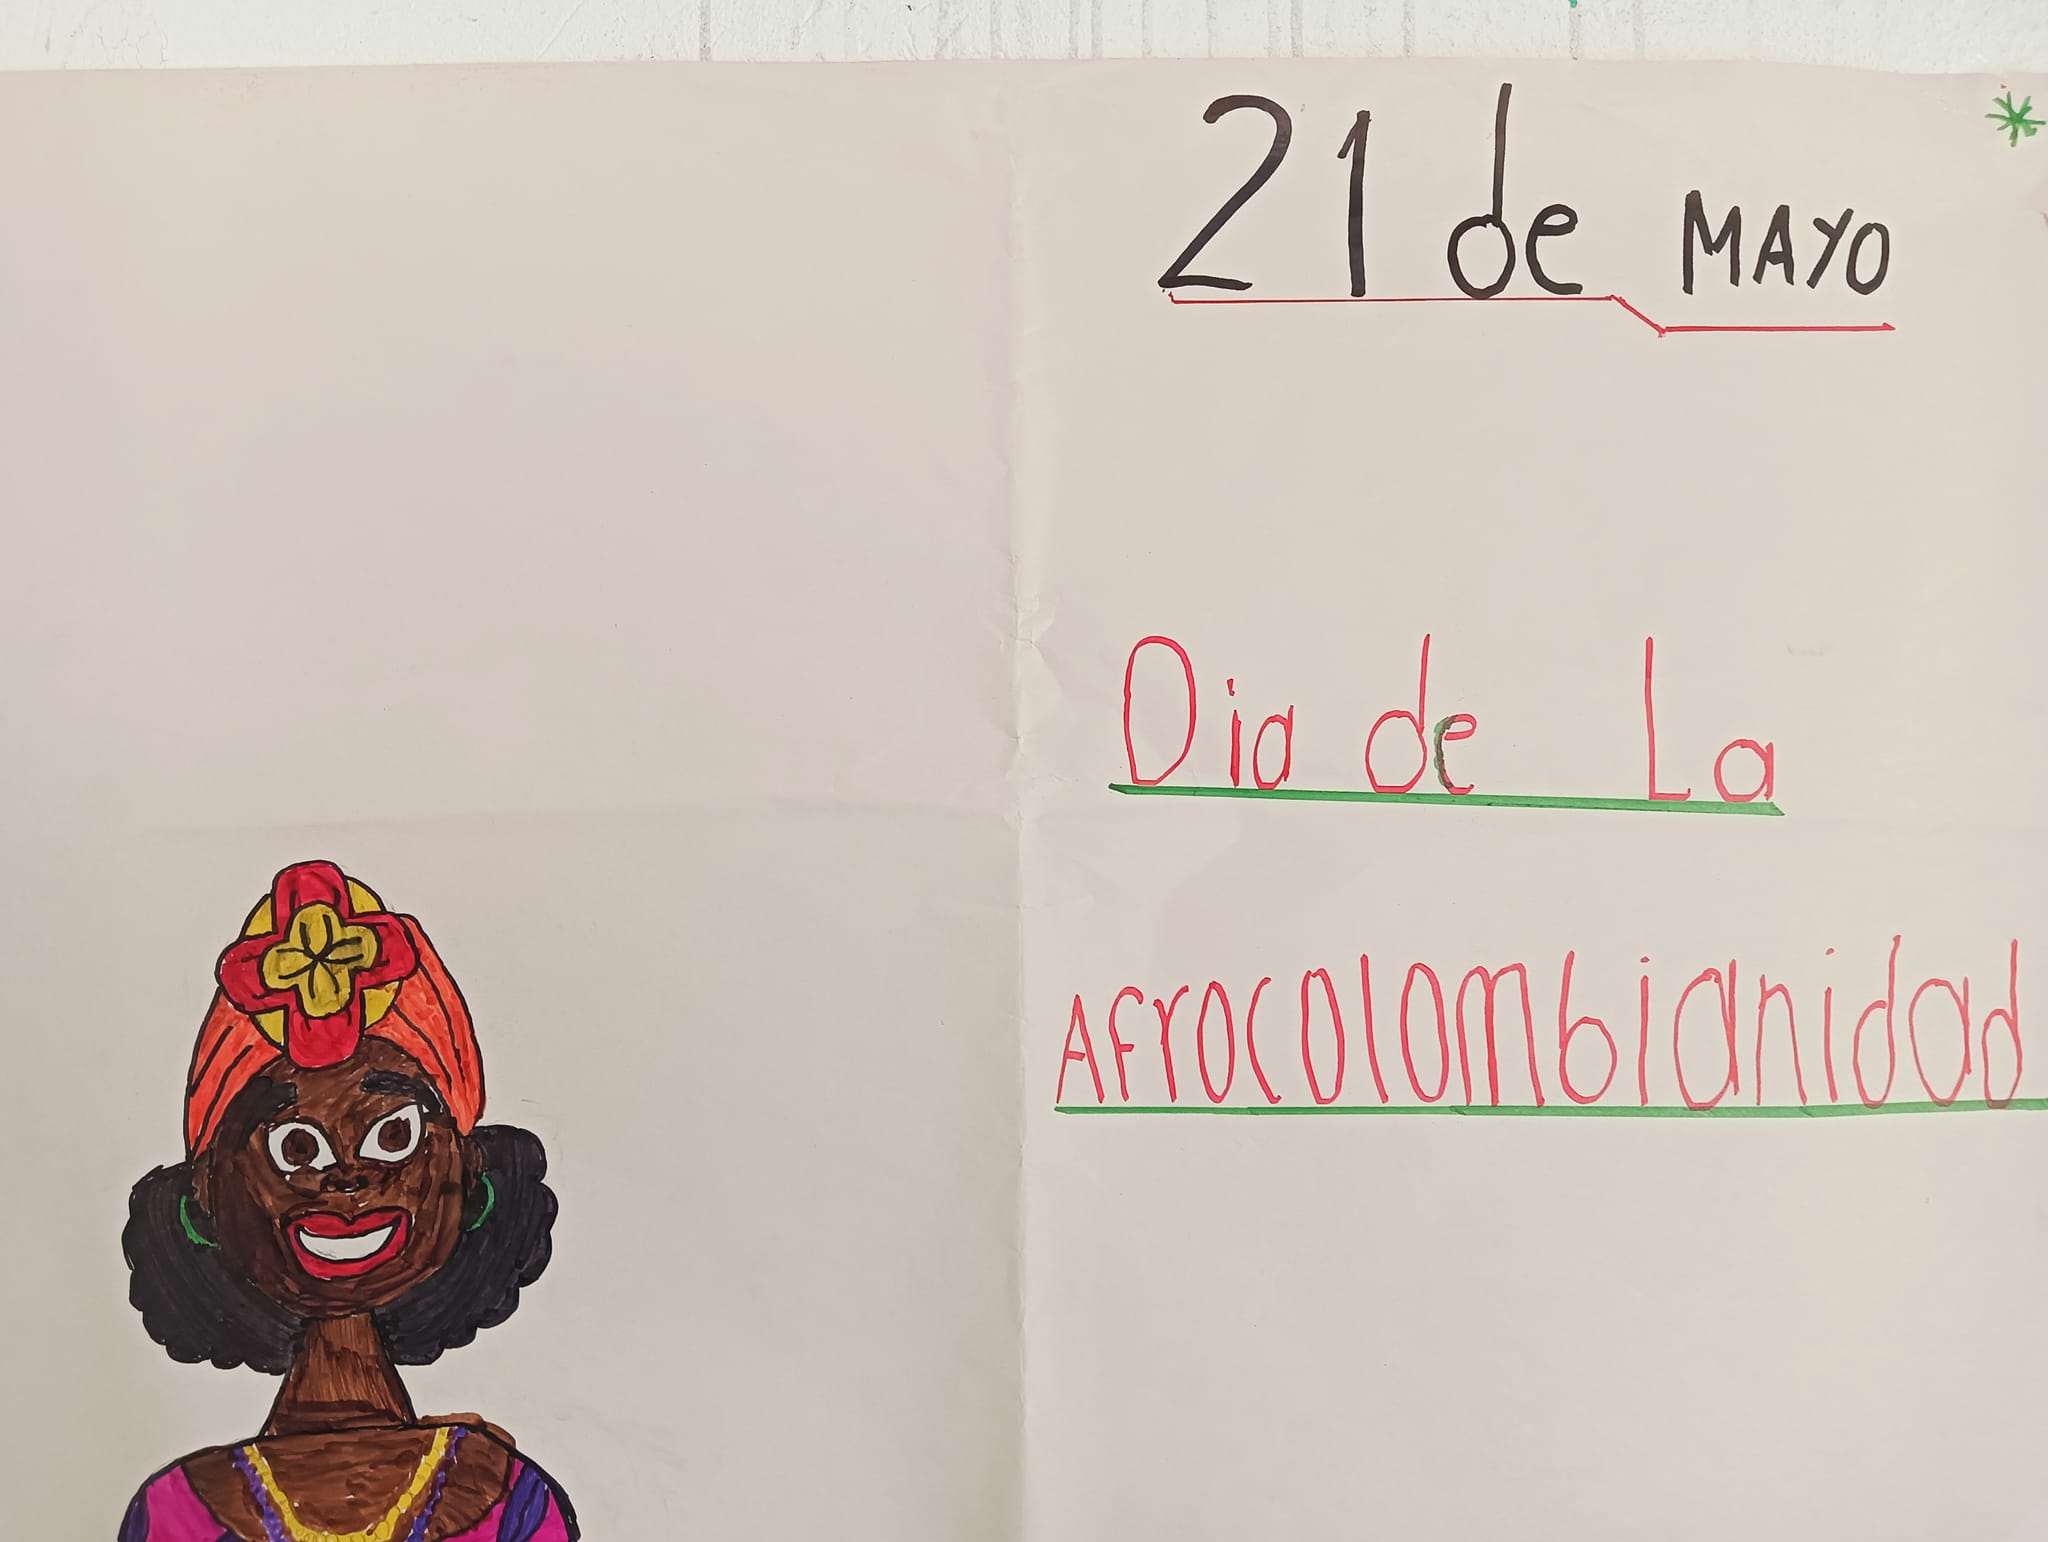 21 de MAYO
Dia de La
Afrocolombianidad